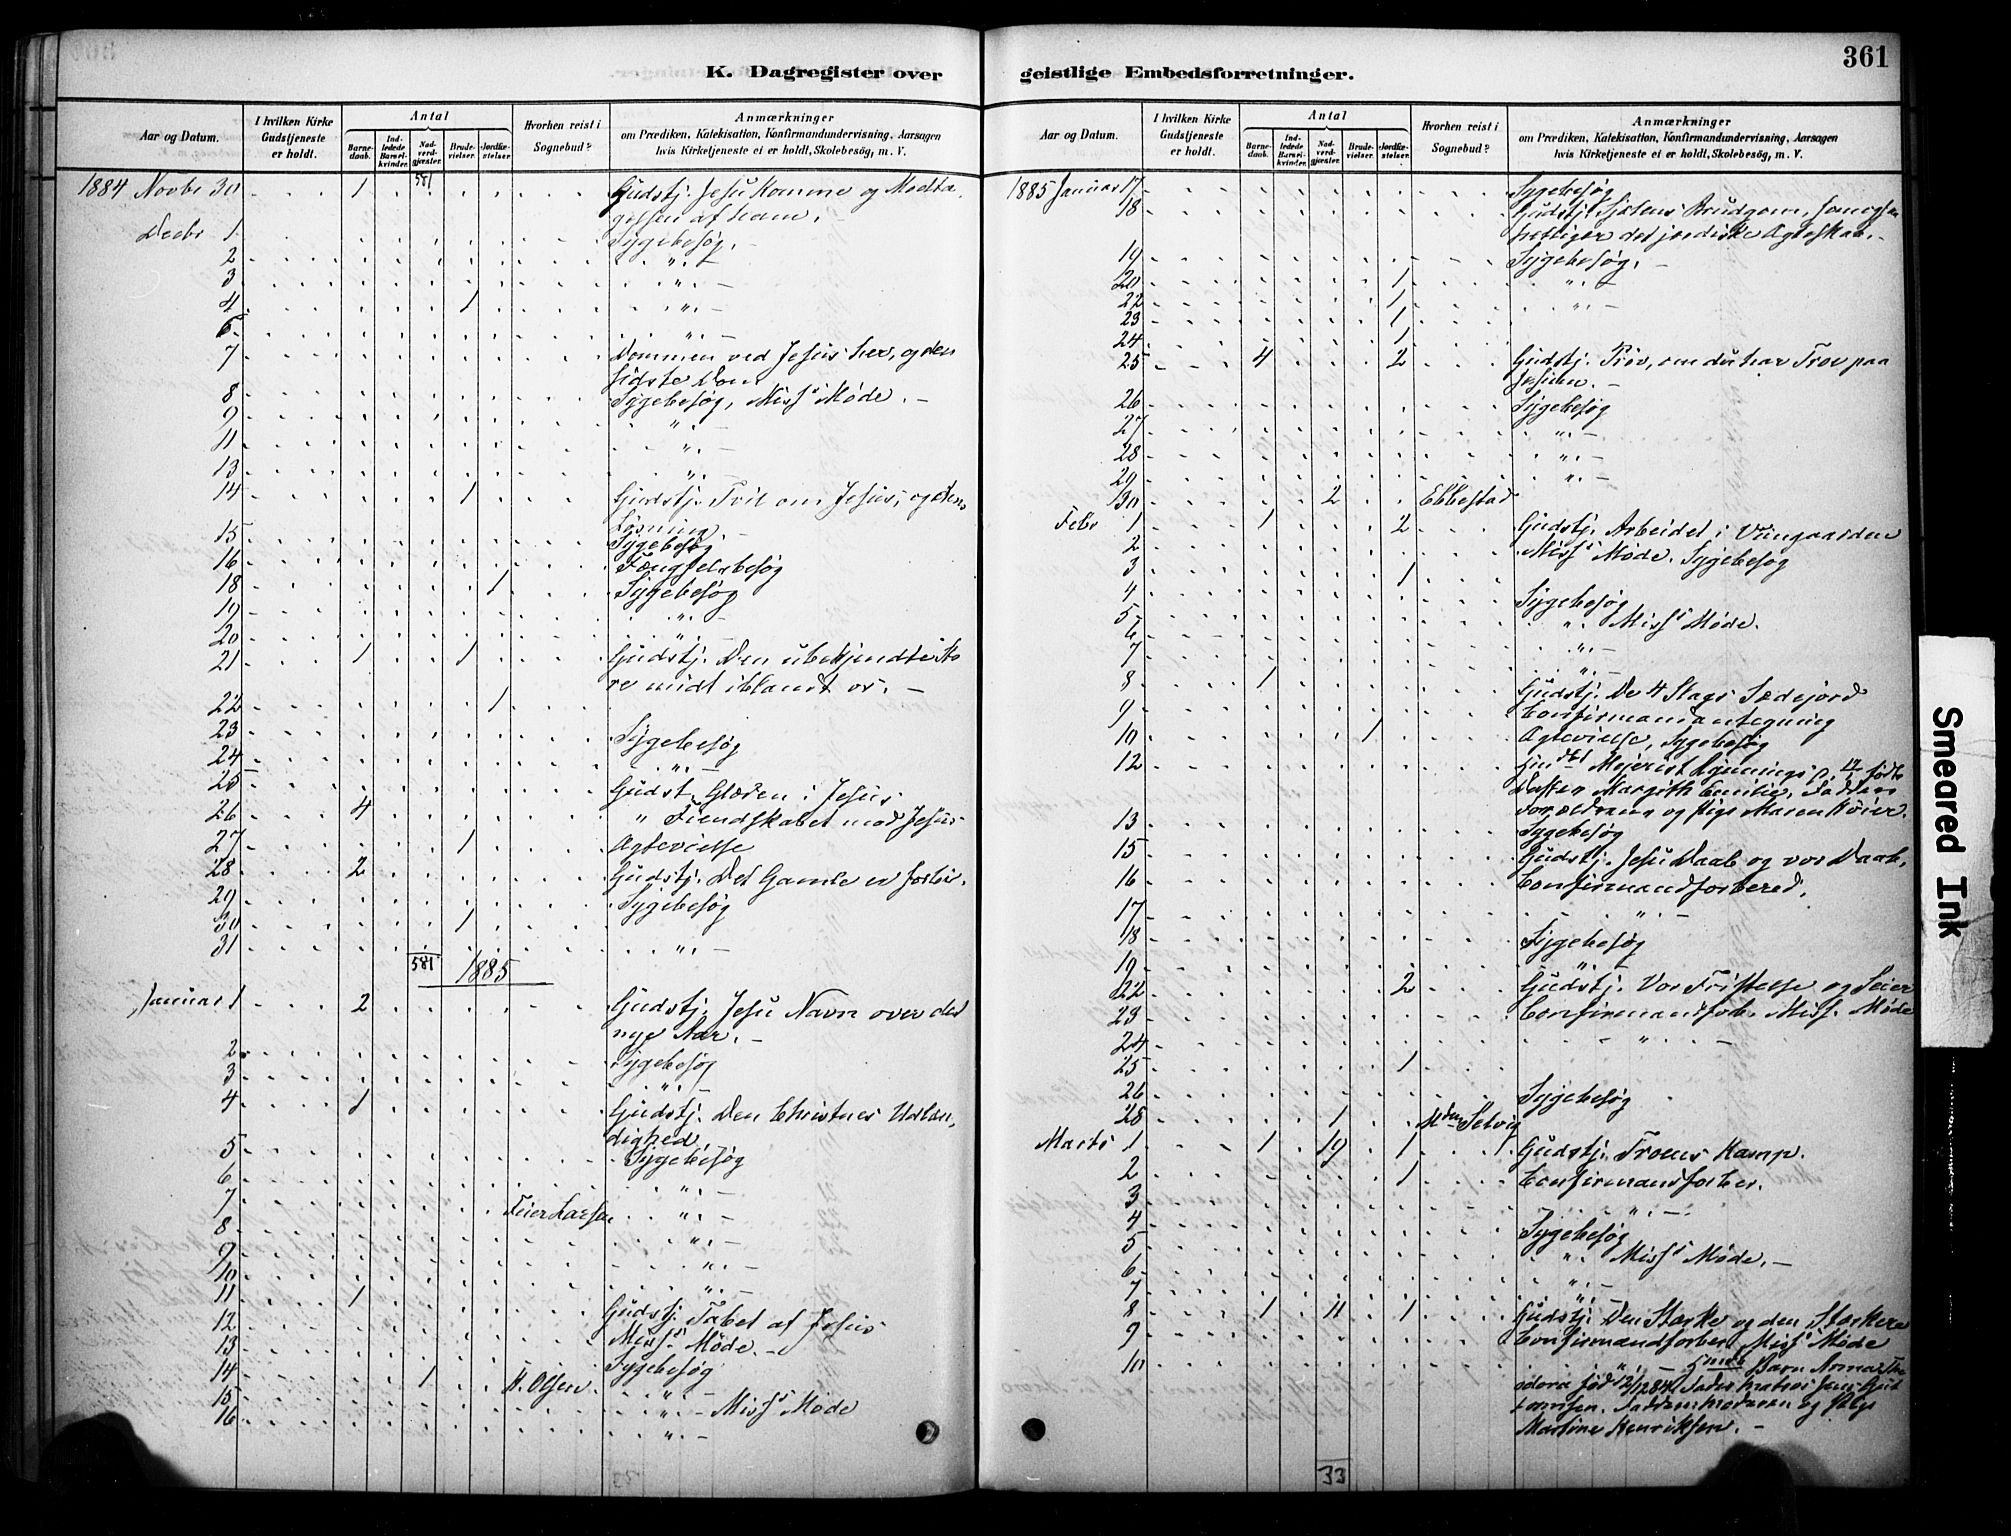 K. Dagregister over
Aar og Datum.
I hvilken Kirke Gudstjeneste er holdt.
Antal
Barnedaab.
Indledede Barselkvinder.
Nadverdgjester.
Brudevielser.
Jordfæstelser.
Hvorhen reist i Sognebud?
Anmærkninger
om Prædiken, Katekisation, Konfirmandundervisning, Aarsagen
hvis Kirketjeneste ei er holdt, Skolebesög, m. V.
1884 Novbr 30 1 581 Gudstj. Jesu Komme og Modta
gelsen af ham.
Decbr 1 Sygebesøg.
2 " –
3 " –
4 1 " –
6 " –
7 Dommen ved Jesus her, og den
sidste Dom
8 Sygebesøg, Miss Møde. –
9 " –
11 " –
13 "
14 1 Gudstj. Tvil om Jesus, og dens
Løsning
15 Sygebesøg
16 Fængselsbesøg
18 1 Sygebesøg
19 " –
20 " –
21 1 1 Gudstj. Den ubekjendte Sto
re midt iblandt os. –
22 1
23 Sygebesøg
24 " –
25 Gudst. Glæden i Jesus
26 4 " Fiendskabet mod Jesus
27 1 Ægtevielse
28 2 Gudstj. Det Gamle er forbi.
29 Sygebesøg
30 1
31 " –
581 1885
Januar 1 2 Gudstj. Jesu Navn over det
nye Aar. –
2 Sygebesøg
3 " –
4 1 Gudstj. Den Christnes
5 Sygebesøg
6 " –
7 Feier Larsen " –
8 " –
9 " –
10 " –
11 1 Gudstj. Tabet af Jesus
12 Miss. Møde. –
13 Sygebesøg
14 1 H. Olsen " –
15 " – Miss Møde
16 " –
geistlige Embedsforretninger.
361
Aar og Datum.
I hvilken Kirke Gudstjeneste er holdt.
Antal
Barnedaab.
Indledede Barselkvinder.
Nadverdgjester.
Brudevielser.
Jordfæstelser.
Hvorhen reist i Sognebud?
Anmærkninger
om Prædiken, Katekisation, Konfirmandundervisning, Aarsagen
hvis Kirketjeneste ei er holdt, Skolebesög, m. V.
1885 Januar 17 Sygebesøg
18 Gudstj. Sjælens Brudgom, som
helliger det jordiske Ægteskab. –
19 Sygebesøg. –
20 1 " –
22 1 " –
23 1
24 1
25 4 2 Gudstj. Prøv, om du har Tro paa
Jesum. –
26 Sygebesøg
27 " –
28 " –
29 " –
30 2 Ekkestad
Febr 1 1 2 Gudstj. Arbeidet i Viingaarden
2 Miss Møde. Sygebesøg
3 1
4 Sygebesøg
5 " Miss Møde.
6 " –
7 " –
8 1 Gudstj. De 4 Slags Sædejord
9 Confirmandantegning
10 1 Ægtevielse, Sygebesøg
12 Meierist
Datter Margith Emilie, Faddere
Forældrene og Pige Maren
13 Sygebesøg
15 Gudstj. Jesu Daab og vor Daab.
16 Confirmandforbered.
17 " –
18 Sygebesøg
19 " –
22 2 Gudstj. Vor Fristelse og Seier
23 Confirmandforb. Miss. Møde
24 " –
25 1
26 Sygebesøg
28 1 Selvig
Marts 1 1 19 1 Gudstj. Troens Kamp.
2 1 Confirmandforber.
3 " –
4 Sygebesøg
5 " Miss Møde. –
6 " –
7
8 1 11 1 Gudstj. Den Stærke og den Stærkere
9 Confirmandforber. Miss Møde
10 " – Barn
født 2/12 84. Fader Matros
Fadder: Moderen og
Martine Henriksen. –
33
Smeared Ink